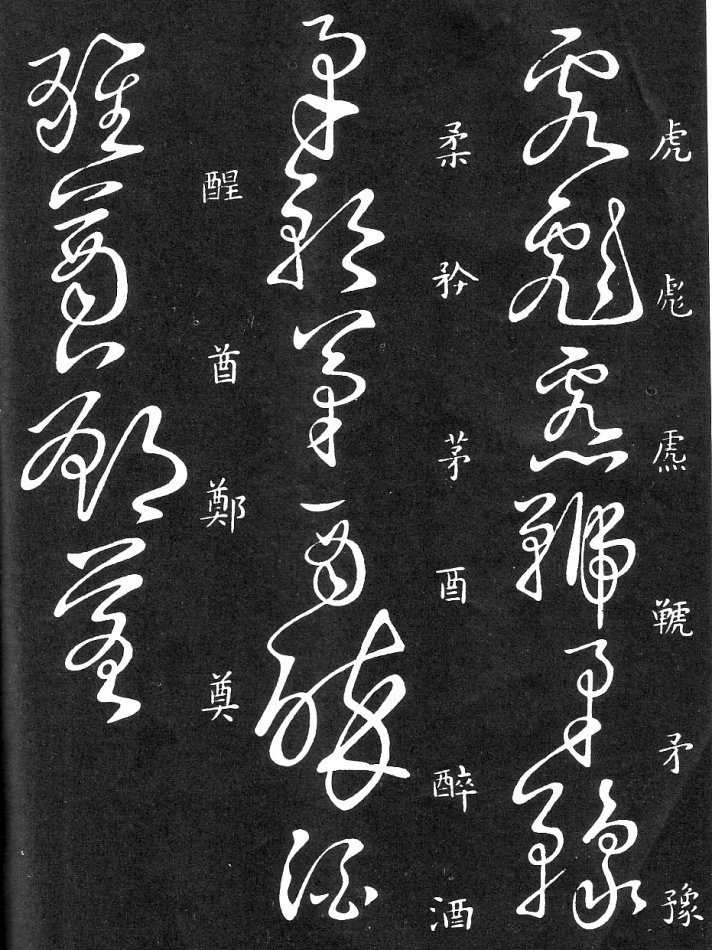 虎彪矛豫
柔矜茅酉醉酒
醒酋鄭奠